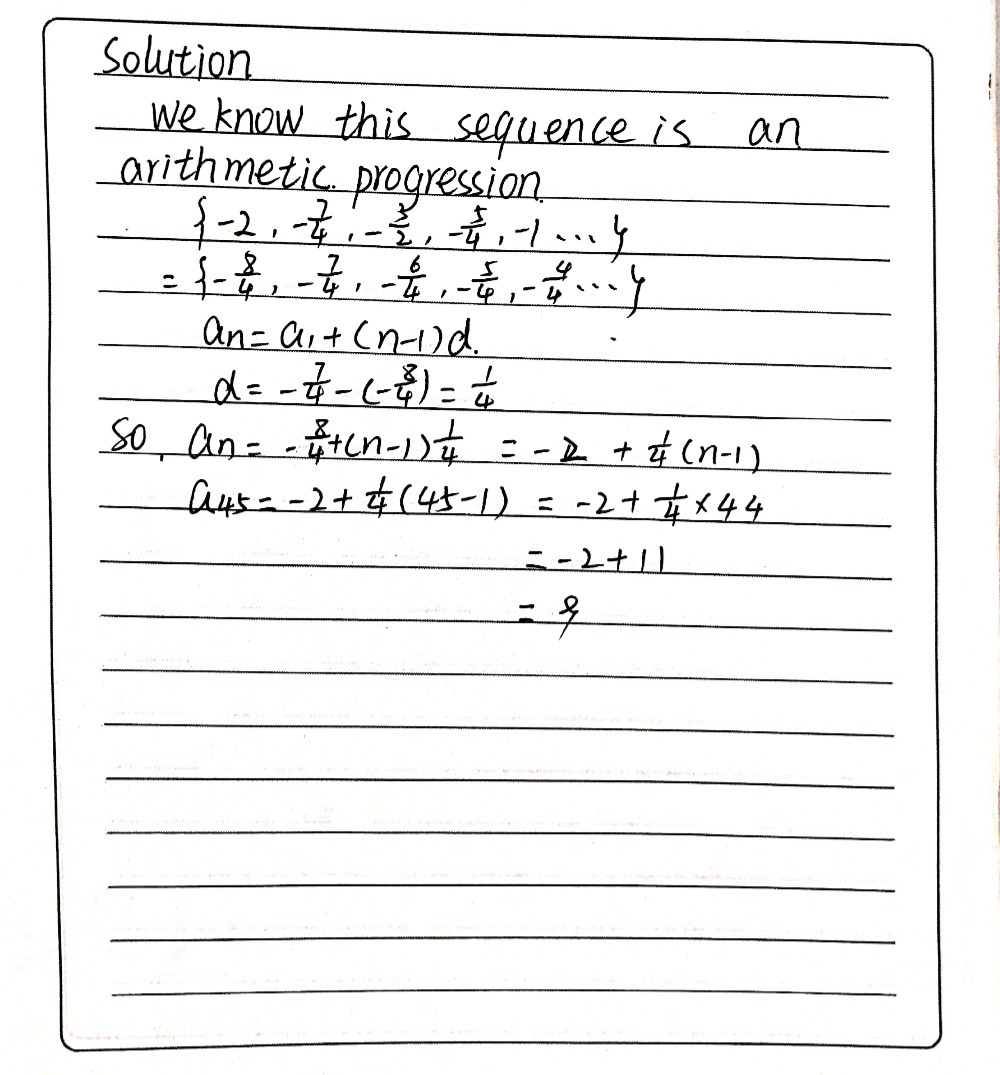 Solution
We know this sequence is an
arithmetic. progression.
{-2, -7/4, -3/2, -5/4, -1 ... }
= {-8/4, -7/4, -6/4, -5/4, -4/4 ... }
an = a1 + (n-1)d.
d = -7/4 - (-8/4) = 1/4
So, an = -8/4 + (n-1) 1/4 = -2 + 1/4 (n-1)
a45 = -2 + 1/4 (45-1) = -2 + 1/4 × 44
= -2 + 11
= 9